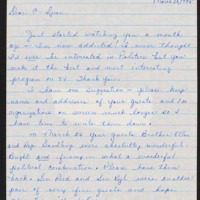 March 26, 1985
Dear C-Span:
Just started watching you a month
ago & I'm now addicted. I never thought
I'd ever be interested in Politics but you
make it the best and most interesting
program on TV. Thank you!
I have one suggestion - please keep
name and address of your guests and/or
organizations on screen much longer so I
have time to write them down.
On March 25 your guests Brother
and Rep. were absolutely wonderful.
Bright and funny - in what a wonderful
political combination. Please have them
back.
pair of very fine guests and hope